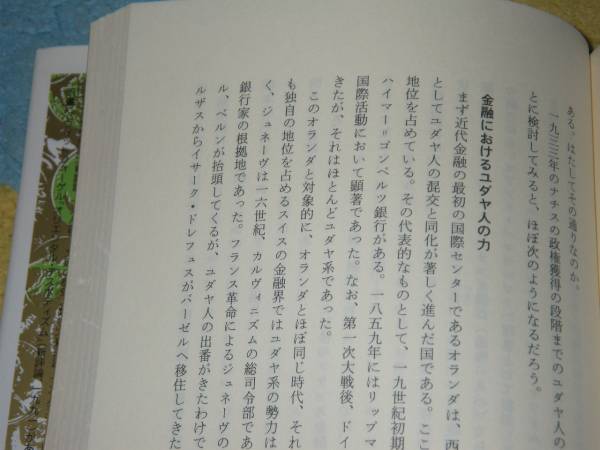 ある。はたしてその通りなのか。
一九三三年のナチスの政権獲得の段階までのユダヤ人の
とに検討してみると、ほぼ次のようになるだろう。
金融におけるユダヤ人の力
まず近代金融の最初の国際センターであるオランダは、西
としてユダヤ人の混交と同化が著しく進んだ国である。ここ
地位を占めている。その代表的なものとして、一九世紀初期
ハイマー=ゴンペルツ銀行がある。一八五九年にはリップマ
国際活動において顕著であった。なお、第一次大戦後、ドイ
きたが、それはほとんどユダヤ系であった。
このオランダと対象的に、オランダとほぼ同じ時代、それ
も独自の地位を占めるスイスの金融界ではユダヤ系の勢力は
く、ジュネーヴは一六世紀、カルヴィニズムの総司令部であ
銀行家の根拠地であった。フランス革命によるジュネーヴの
ル、ベルンが抬頭してくるが、ユダヤ人の出番がきたわけで
ルザスからイサーク・ドレフュスがバーゼルへ移住してきた